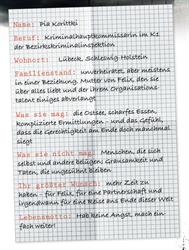 Name: Pia Korittki
Beruf: Kriminalhauptkommissarin im K1
der Bezirkskriminalinspektion
Wohnort: Lübeck, Schleswig Holstein
Familienstand: unverheiratet, aber meistens
in einer Beziehung. Mutter von Felix, den sie
über alles liebt und der ihrem Organisations-
talent einiges abverlangt
Was sie mag: die Ostsee, scharfes Essen,
komplizierte Ermittlungen - und das Gefühl,
dass die Gerechtigkeit am Ende doch manchmal
siegt
Was sie nicht mag: Menschen, die sich
selbst und andere belügen; Grausamkeit und
Taten, die ungesühnt bleiben
Ihr größter Wunsch: mehr Zeit zu
haben - für Felix, für eine Partnerschaft und
irgendwann für eine Reise ans Ende dieser Welt
Lebensmotto: Hab keine Angst, mach ein-
fach weiter!